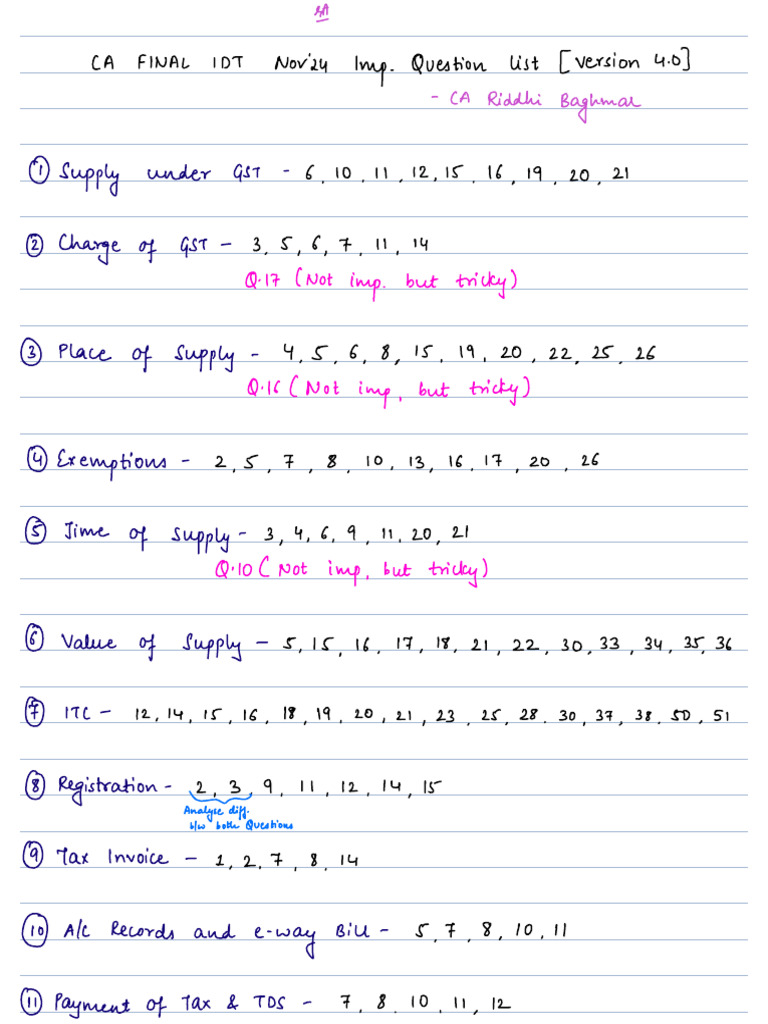 CA FINAL IDT Nov'24 Imp. Question list [Version 4.0]
- CA Riddhi Baghmar
① Supply under GST - 6, 10, 11, 12, 15, 16, 19, 20, 21
② Charge of GST - 3, 5, 6, 7, 11, 14
Q.17 (Not imp. but tricky)
③ Place of Supply - 4, 5, 6, 8, 15, 19, 20, 22, 25, 26
Q.16 (Not imp, but tricky)
④ Exemptions - 2, 5, 7, 8, 10, 13, 16, 17, 20, 26
⑤ Time of Supply - 3, 4, 6, 9, 11, 20, 21
Q.10 (Not imp, but tricky)
⑥ Value of Supply - 5, 15, 16, 17, 18, 21, 22, 30, 33, 34, 35, 36
⑦ ITC - 12, 14, 15, 16, 18, 19, 20, 21, 23, 25, 28, 30, 37, 38, 50, 51
⑧ Registration - 2, 3, 9, 11, 12, 14, 15
Analyse diff.
b/w both Questions
⑨ Tax Invoice - 1, 2, 7, 8, 14
⑩ A/c Records and e-way Bill - 5, 7, 8, 10, 11
⑪ Payment of Tax & TDS - 7, 8, 10, 11, 12